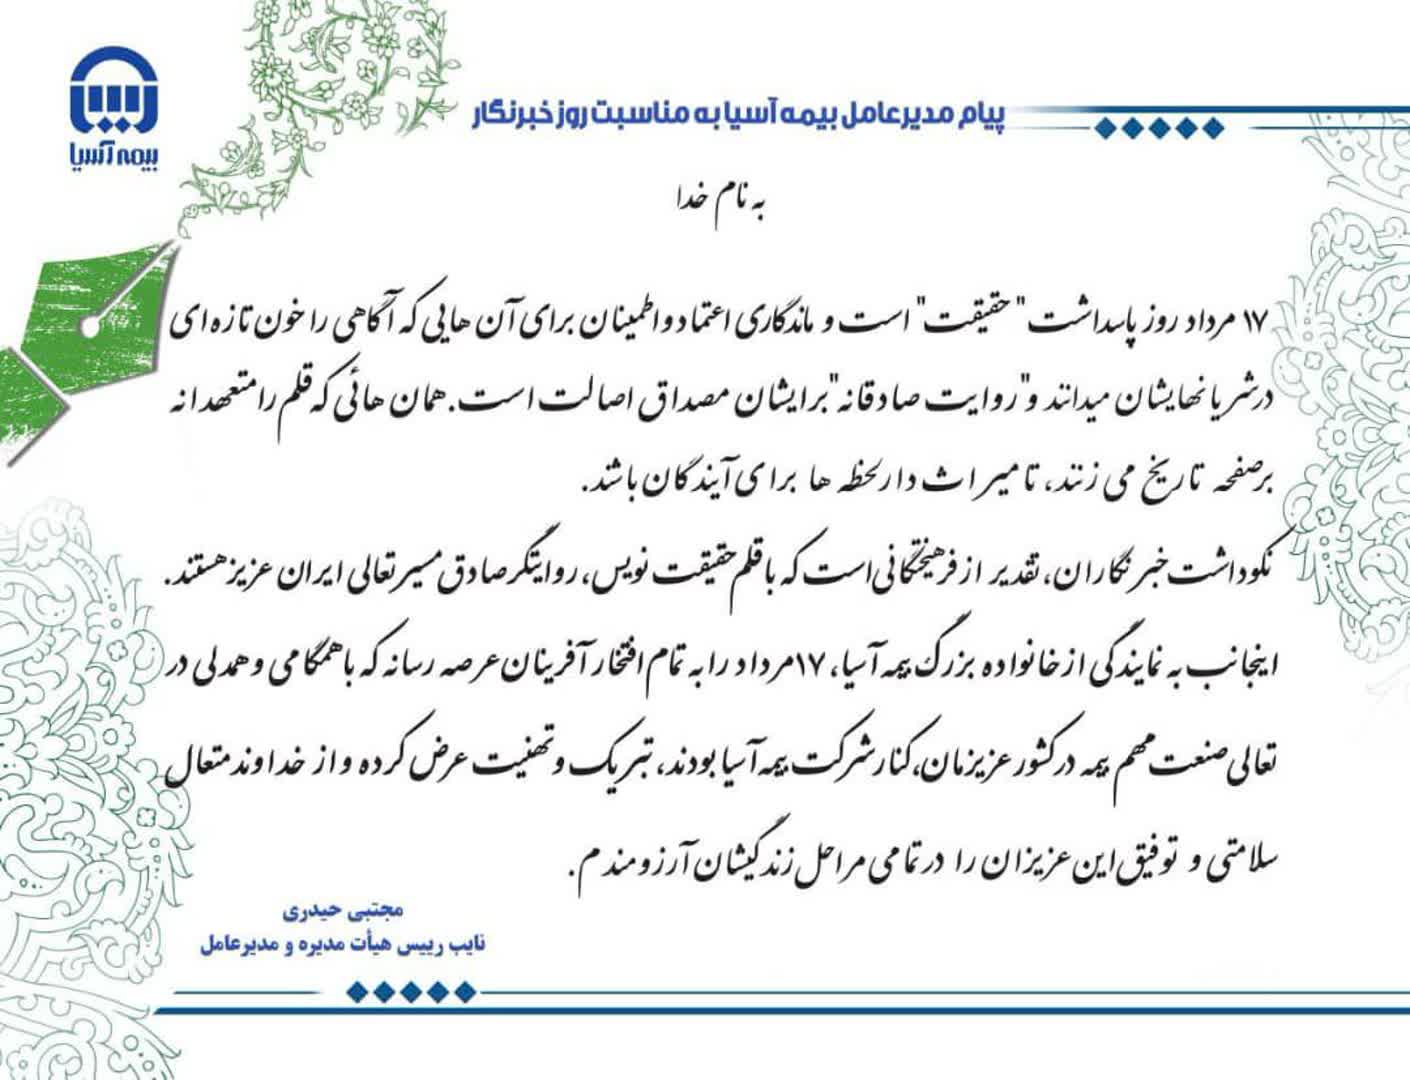 پیام مدیرعامل بیمه آسیا به مناسبت روز خبرنگار
بیمه آسیا
به نام خدا
۱۷ مرداد روز پاسداشت "حقیقت" است و ماندگاری اعتماد و اطمینان برای آن هایی که آگاهی را خون تازه ای
درشریانهایشان میدانند و"روایت صادقانه"برایشان مصداق اصالت است. همان هائی که قلم را متعهدانه
برصفحه تاریخ می زنند، تا میراث دار لحظه ها برای آیندگان باشد.
نکوداشت خبرنگاران، تقدیر از فرهیختگانی است که با قلم حقیقت نویس، روایتگر صادق مسیر تعالی ایران عزیز هستند.
اینجانب به نمایندگی از خانواده بزرگ بیمه آسیا، ۱۷مرداد را به تمام افتخار آفرینان عرصه رسانه که با همگامی و همدلی در
تعالی صنعت مهم بیمه درکشور عزیزمان،کنار شرکت بیمه آسیا بودند، تبریک و تهنیت عرض کرده و از خداوند متعال
سلامتی و توفیق این عزیزان را درتمامی مراحل زندگیشان آرزومندم.
مجتبی حیدری
نایب رییس هیأت مدیره و مدیرعامل